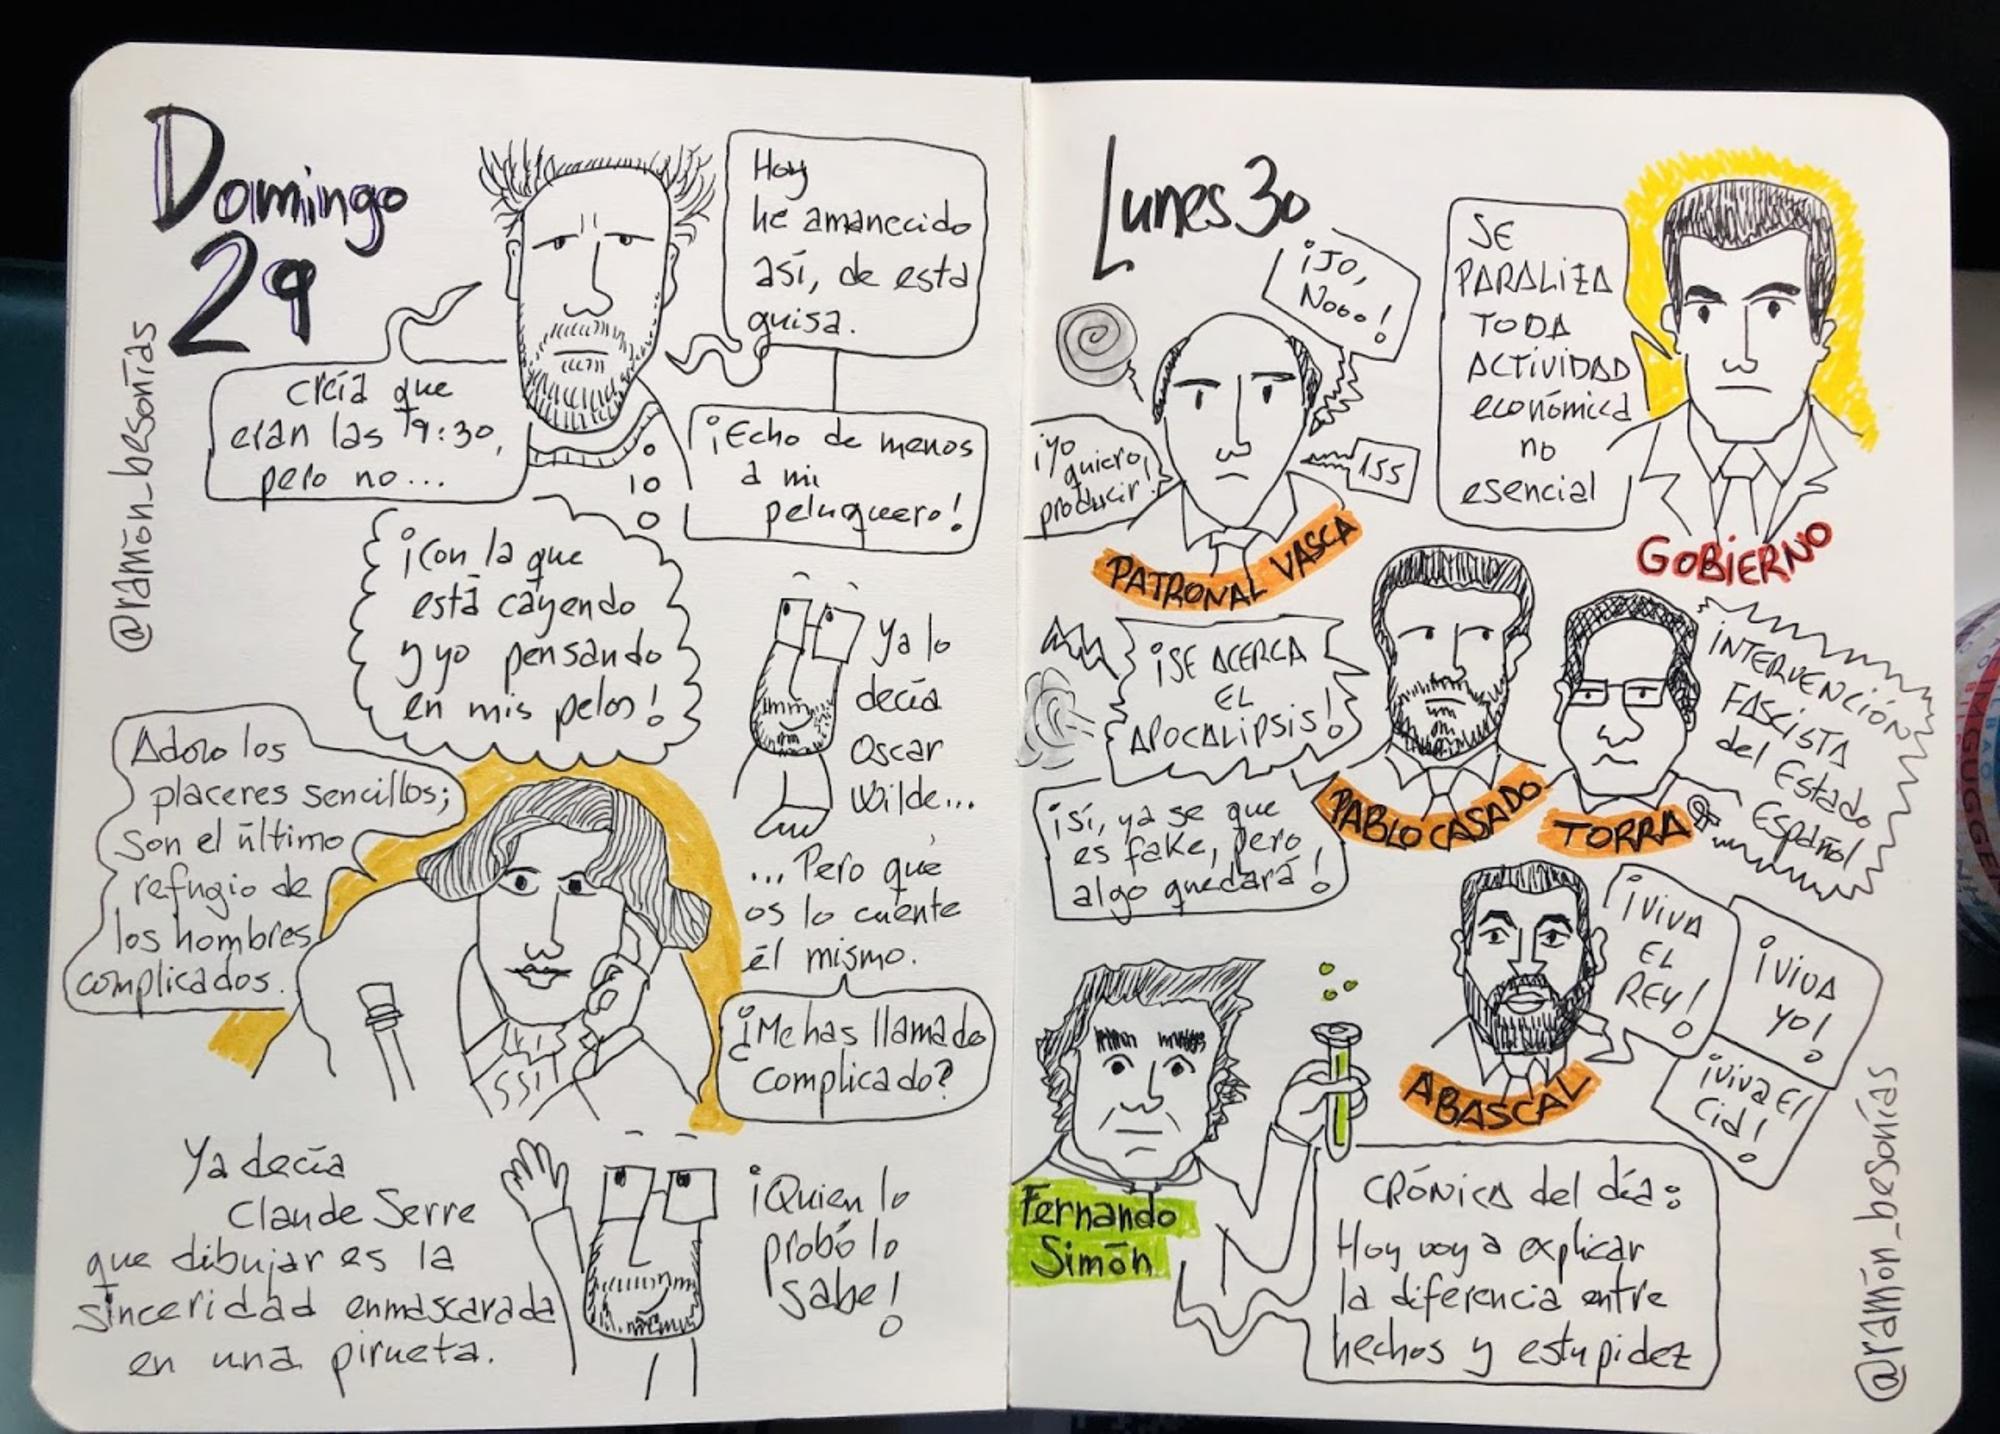 Domingo
29
@ramón_besonías
Hoy
he amanecido
así, de esta
guisa.
creía que
eran las 9:30,
pero no...
¡Echo de menos
a mi
peluquero!
¡Con la que
está cayendo
y yo pensando
en mis pelos!
Ya lo
decía
Oscar
Wilde...
... Pero que
os lo cuente
él mismo.
Adoro los
placeres sencillos;
son el último
refugio de
los hombres
complicados.
¿Me has llamado
complicado?
Ya decía
Claude Serre
que dibujar es la
sinceridad enmascarada
en una pirueta.
¡Quien lo
probó lo
sabe!
Lunes 30
¡JO,
Nooo!
SE
PARALIZA
TODA
ACTIVIDAD
económica
no
esencial
GOBIERNO
¡Yo
quiero
producir!
155
PATRONAL VASCA
¡SE ACERCA
EL
APOCALIPSIS!
¡Sí, ya se que
es fake, pero
algo quedará!
PABLO CASADO
TORRA
INTERVENCIÓN
FASCISTA
del Estado
Español
¡VIVA
EL
REY!
¡VIVA
YO!
¡Viva El
Cid!
ABASCAL
Fernando
Simón
CRÓNICA del día:
Hoy voy a explicar
la diferencia entre
hechos y estupidez
@ramón_besonías